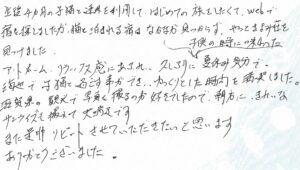 生後4ヵ月の子猫と連泊を利用して、はじめての旅をしたくて、webで
宿を探しましたが、猫と泊まれる宿はなかなか見つからず、やっとます好を
見つけました。
アットホーム、リラックス感にあふれ、久しぶりに
子供の時に味わった
夏休み気分で、
海辺で子猫と過ごす事ができ、ゆっくりとした時間を満喫しました。
滋賀県の
写真を撮るのが好きでしたので、朝方に、きれいな
サンライズも撮れて大満足です
また是非リピートさせていただきたいと思います
ありがとうございました。